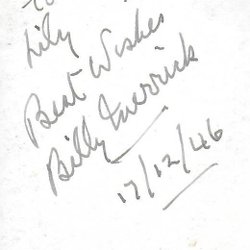 To
Lily
Best Wishes
Billy Merrick
17/12/46